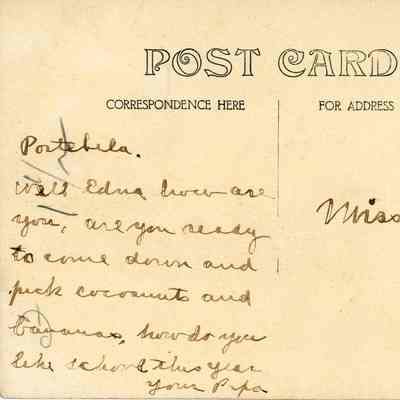 POST CARD
CORRESPONDENCE HERE
FOR ADDRESS
Portebela.
Well Edna how are
you, are you ready
to come down and
pick cocoanuts and
bananas, how do you
like school this year
your Papa
Miss